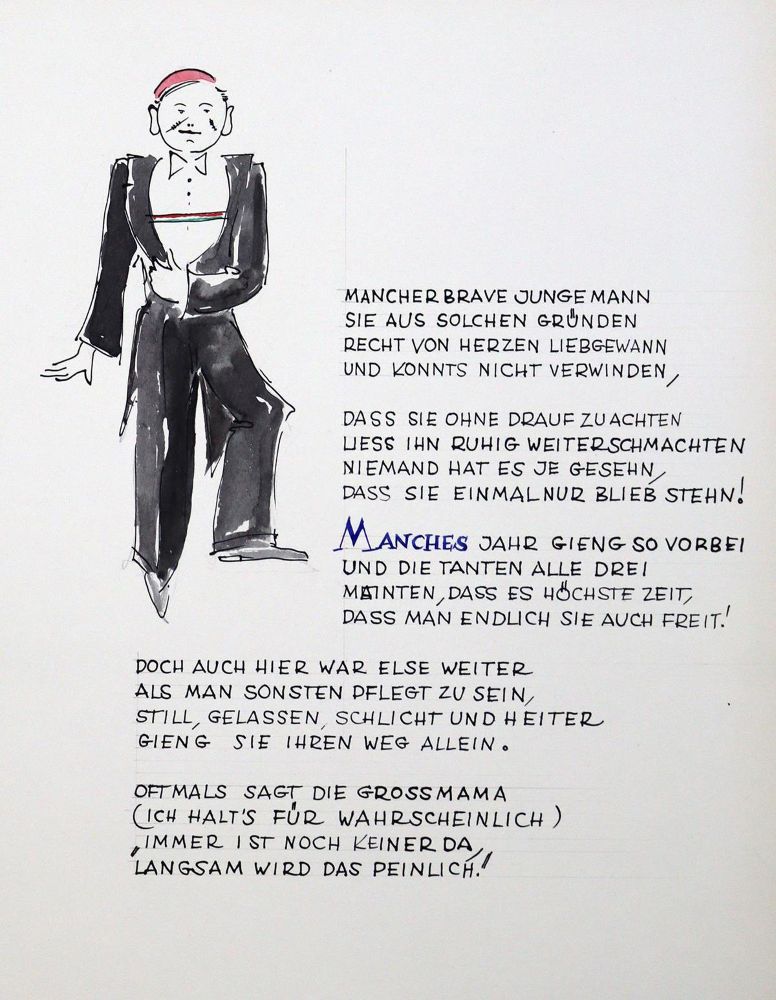 MANCHER BRAVE JUNGE MANN
SIE AUS SOLCHEN GRÜNDEN
RECHT VON HERZEN LIEBGEWANN
UND KONNTS NICHT VERWINDEN,
DASS SIE OHNE DRAUF ZU ACHTEN
LIESS IHN RUHIG WEITERSCHMACHTEN
NIEMAND HAT ES JE GESEHN,
DASS SIE EINMAL NUR BLIEB STEHN!
MANCHES JAHR GIENG SO VORBEI
UND DIE TANTEN ALLE DREI
MAINTEN, DASS ES HÖCHSTE ZEIT,
DASS MAN ENDLICH SIE AUCH FREIT!
DOCH AUCH HIER WAR ELSE WEITER
ALS MAN SONSTEN PFLEGT ZU SEIN,
STILL, GELASSEN, SCHLICHT UND HEITER
GIENG SIE IHREN WEG ALLEIN.
OFTMALS SAGT DIE GROSSMAMA
(ICH HALT'S FÜR WAHRSCHEINLICH)
„IMMER IST NOCH KEINER DA,
LANGSAM WIRD DAS PEINLICH."